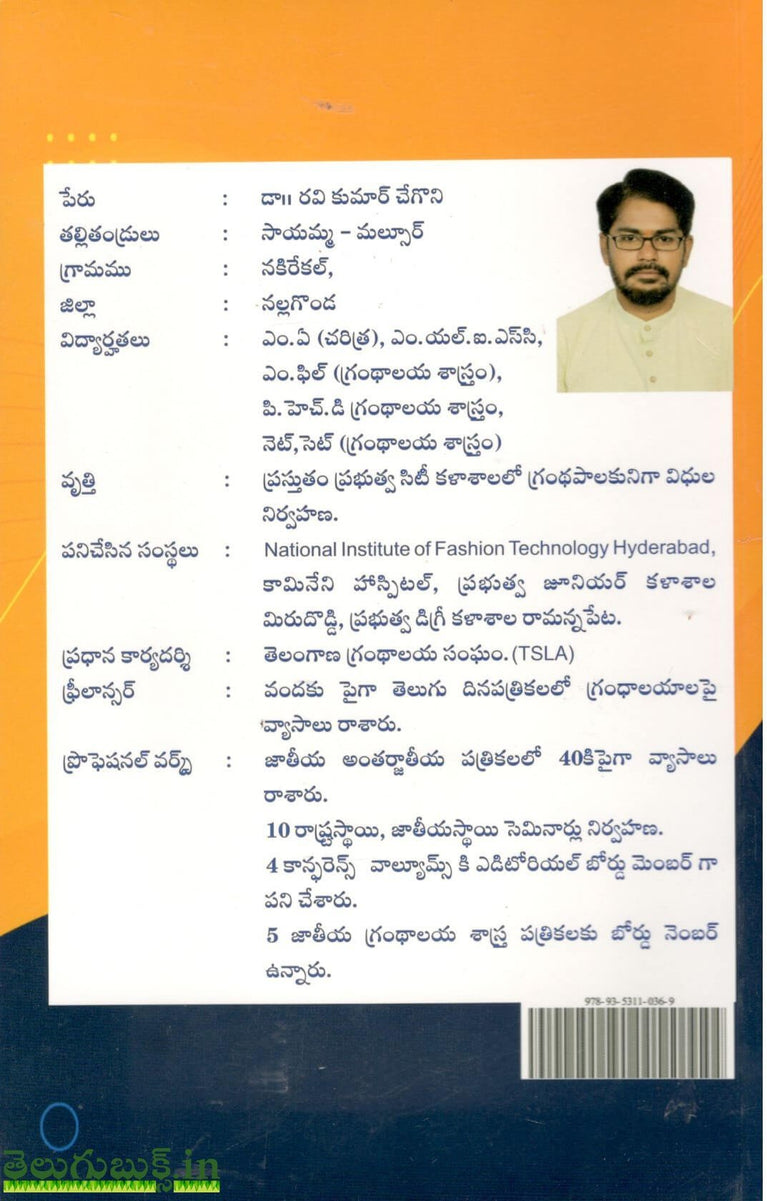 పేరు : డా॥ రవి కుమార్ చేగొని
తల్లితండ్రులు : సాయమ్మ – మల్సూర్
గ్రామము : నకిరేకల్,
జిల్లా : నల్లగొండ
విద్యార్హతలు : ఎం.ఏ (చరిత్ర), ఎం.యల్.ఐ.ఎస్‌సి,
ఎం.ఫిల్ (గ్రంథాలయ శాస్త్రం),
పి.హెచ్.డి గ్రంథాలయ శాస్త్రం,
నెట్,సెట్ (గ్రంథాలయ శాస్త్రం)
వృత్తి : ప్రస్తుతం ప్రభుత్వ సిటీ కళాశాలలో గ్రంథపాలకునిగా విధుల
నిర్వహణ.
పనిచేసిన సంస్థలు : National Institute of Fashion Technology Hyderabad,
కామినేని హాస్పిటల్, ప్రభుత్వ జూనియర్ కళాశాల
మిరుదొడ్డి, ప్రభుత్వ డిగ్రీ కళాశాల రామన్నపేట.
ప్రధాన కార్యదర్శి : తెలంగాణ గ్రంథాలయ సంఘం. (TSLA)
ఫ్రీలాన్సర్ : వందకు పైగా తెలుగు దినపత్రికలలో గ్రంధాలయాలపై
వ్యాసాలు రాశారు.
ప్రొఫెషనల్ వర్క్స్ : జాతీయ అంతర్జాతీయ పత్రికలలో 40కిపైగా వ్యాసాలు
రాశారు.
10 రాష్ట్రస్థాయి, జాతీయస్థాయి సెమినార్లు నిర్వహణ.
4 కాన్ఫరెన్స్ వాల్యూమ్స్ కి ఎడిటోరియల్ బోర్డు మెంబర్ గా
పని చేశారు.
5 జాతీయ గ్రంథాలయ శాస్త్ర పత్రికలకు బోర్డు నెంబర్
ఉన్నారు.
978-93-5311-036-9
తెలుగుబుక్స్.in